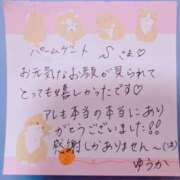 パームサント Sさま♡
お元気なお顔が見られて
とっても嬉しかったです♡
アレも本当の本当にあり
がとうございました!!
感謝しかありません〜(泣)
ゆうか